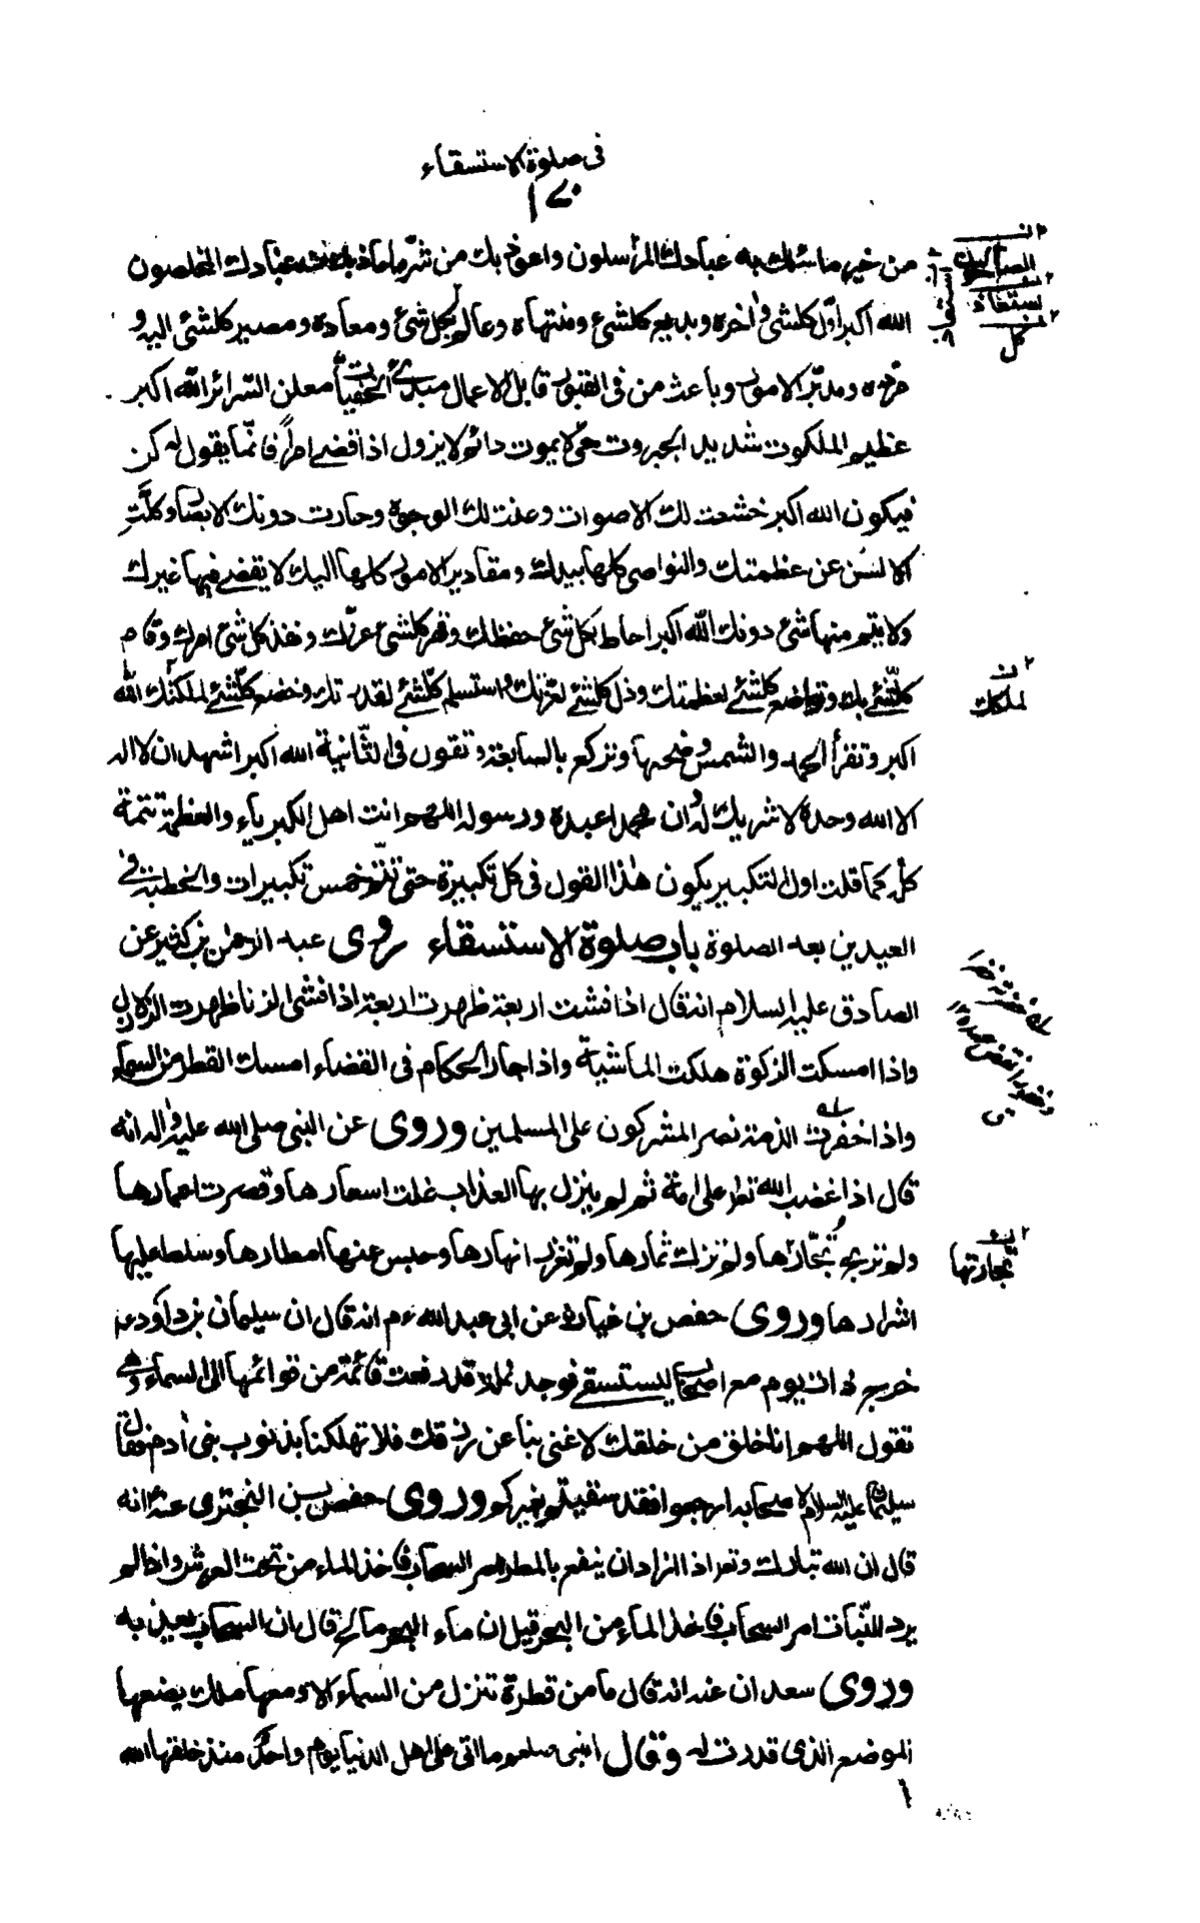 فى صلوة الاستسقاء
١٧٠
من خير ما سئلك به عبادك المرسلون واعوذ بك من شرّ ما عاذ منه عبادك المخلصون
الله اكبر اوّل كلشئ واخره وبديع كلشئ ومنتهاه وعالم بكل شئ ومعاده ومصير كلشئ اليه و
مردّه ومدبّر الامور وباعث من فى القبور قابل الاعمال مبدئ الخفيات معلن السّرائر الله اكبر
عظيم الملكوت شديد الجبروت حىّ لا يموت دائم لا يزول اذا قضى امراً فانّما يقول له كن
فيكون الله اكبر خشعت لك الاصوات وعنت لك الوجوه وحارت دونك الابصار وكلّت
الالسُن عن عظمتك والنواصى كلها بيدك ومقادير الامور كلها اليك لا يقضى فيها غيرك
ولا يتم منها شئ دونك الله اكبر احاط بكل شئ حفظك وقهر كلشئ عزّك ونفذ كل شئ امرك وقام
كلّشئ بك وتواضع كلشئ لعظمتك وذل كلشئ لعزتك واستسلم كلّشئ لقدرتك وخضع كلّشئ لملكتك الله
اكبر وتقرأ الحمد والشمس وضحيها وتركع بالسابعة وتقول فى الثّانية الله اكبر اشهد ان لا اله
الا الله وحده لا شريك له وان محمدا عبده ورسوله اللهم انت اهل الكبرياء والعظمة تتمة
كله كما قلت اول التكبير يكون هذا القول فى كل تكبيرة حتى تتمّ خمس تكبيرات والخطبة فى
العيدين بعد الصلوة باب صلوة الاستسقاء روى عبد الرحمن بن كثير عن
الصادق عليه السلام انه قال اذا فشت اربعة ظهرت اربعة اذا فشى الزنا ظهرت الزلازل
واذا امسكت الزكوة هلكت الماشية واذا جار الحكام فى القضاء امسك القطر من السماء
واذا خفرت الذمة نصر المشركون على المسلمين وروى عن النبى صلى الله عليه واله انه
قال اذا غضب الله تعا على امة ثم لم ينزل بها العذاب غلت اسعارها وقصرت اعمارها
ولم تربح تجّارُها ولم تزك ثمارها ولم تغزر انهارها وحبس عنها امطارها وسلط عليها
اشرارها وروى حفص بن غياث عن ابى عبد الله ءم انه قال ان سليمان بن داود ع
خرج ذات يوم مع اصحابه ليستسقى فوجد نملة قد رفعت قائمة من قوائمها الى السماء وهى
تقول اللهم انا خلق من خلقك لا غنى بنا عن رزقك فلا تهلكنا بذنوب بنى ادم فقال
سليمان عليه السلام لاصحابه ارجعوا فقد سقيتم بغيركم وروى حفص بن البخترى عنه انه
قال ان الله تبارك وتعا اذا اراد ان ينفع بالمطر امر السحاب فاخذ الماء من تحت العرش واذا لم
يرد للنّبات امر السحاب فاخذ الماء من البحر قيل ان ماء البحر مالح قال ان السحاب يعذبه
وروى سعدان عنه انه قال ما من قطرة تنزل من السماء الا ومعها ملك يضعها
الموضع الذى قدرت له وقال النبى صلعم ما اتى على اهل الدنيا يوم واحد منذ خلقها الله
الصالحون
استعاذ
كل
لملكك
تجارتها